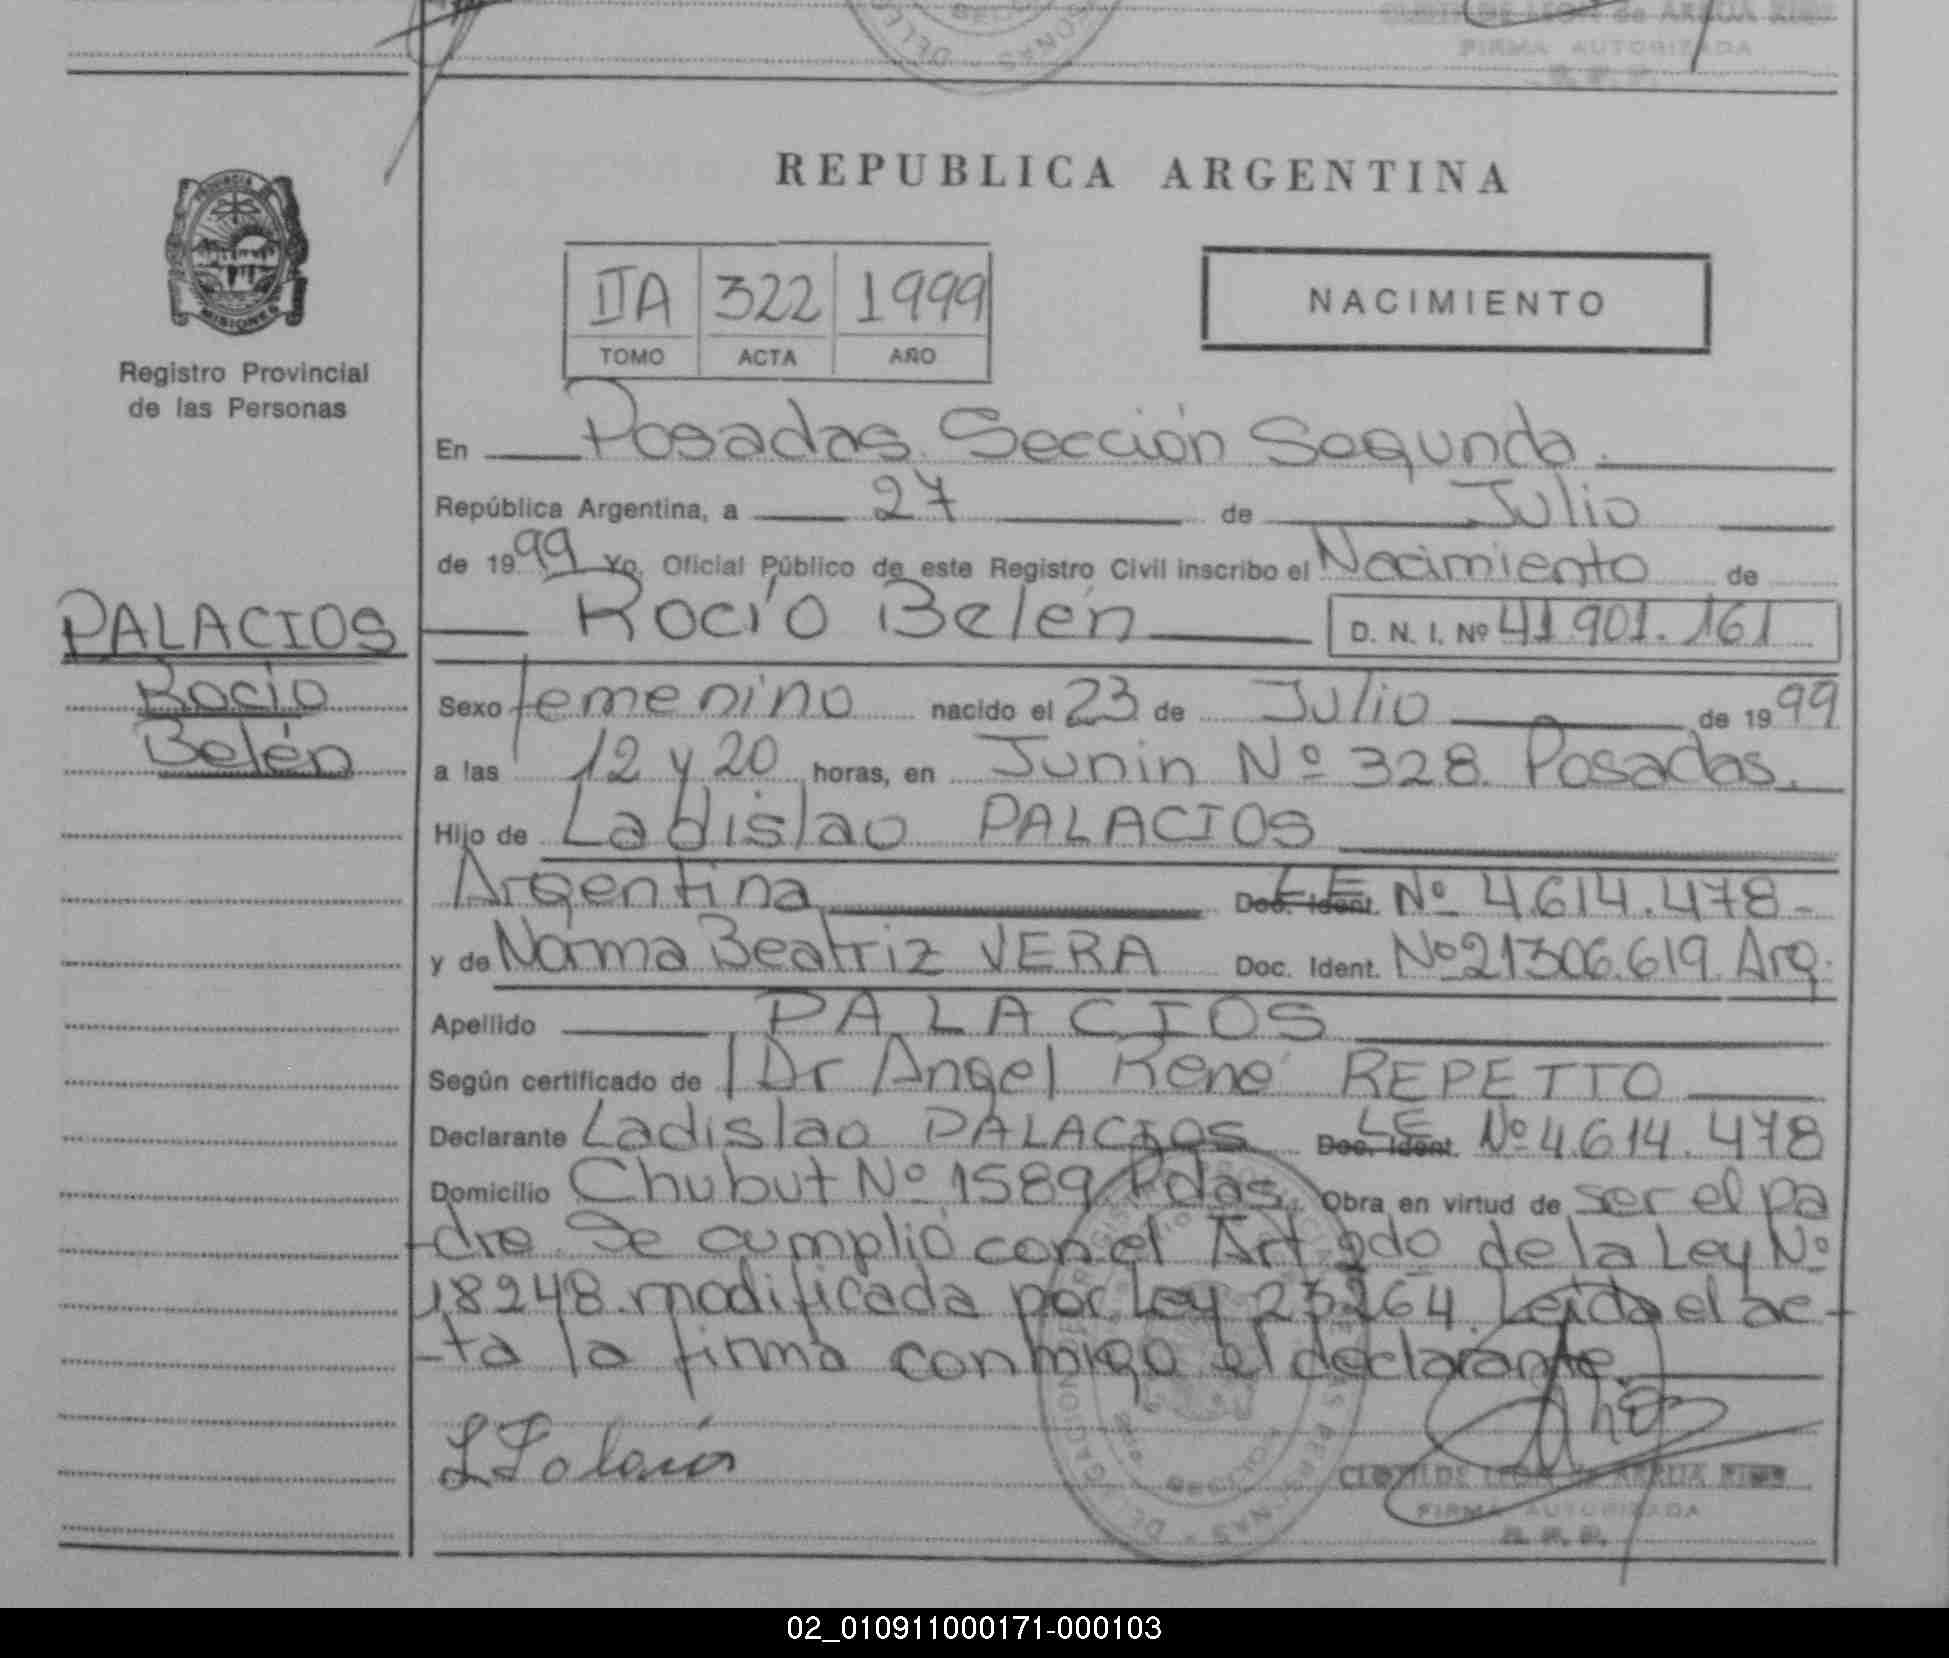 FIRMA AUTORIZADA
REPUBLICA ARGENTINA
MISIONES
Registro Provincial
de las Personas
IIA 322 1999
TOMO ACTA AÑO
NACIMIENTO
En Posadas. Sección Segunda.
República Argentina, a 27 de Julio
de 1999 Yo, Oficial Público de este Registro Civil inscribo el Nacimiento de
Rocío Belén D. N. I. Nº 41.901.161
PALACIOS
Rocío
Belén
Sexo femenino nacido el 23 de Julio de 1999
a las 12 y 20 horas, en Junin Nº 328. Posadas.
Hijo de Ladislao PALACIOS
Argentina Doc. Ident. LE Nº 4.614.478-
y de Norma Beatriz VERA Doc. Ident. Nº 21306.619. Arg.
Apellido PALACIOS
Según certificado de Dr Angel René REPETTO
Declarante Ladislao PALACIOS Doc. Ident. LE Nº 4.614.478
Domicilio Chubut Nº 1589 Pdas. Obra en virtud de ser el pa
-dre. Se cumplió con el Art 2do de la Ley Nº
18248. modificada por Ley 23264. Leida el ac-
-ta la firma conmigo el declarante.
CLOTILDE LEON de
FIRMA AUTORIZADA
R. P. P.
02_010911000171-000103